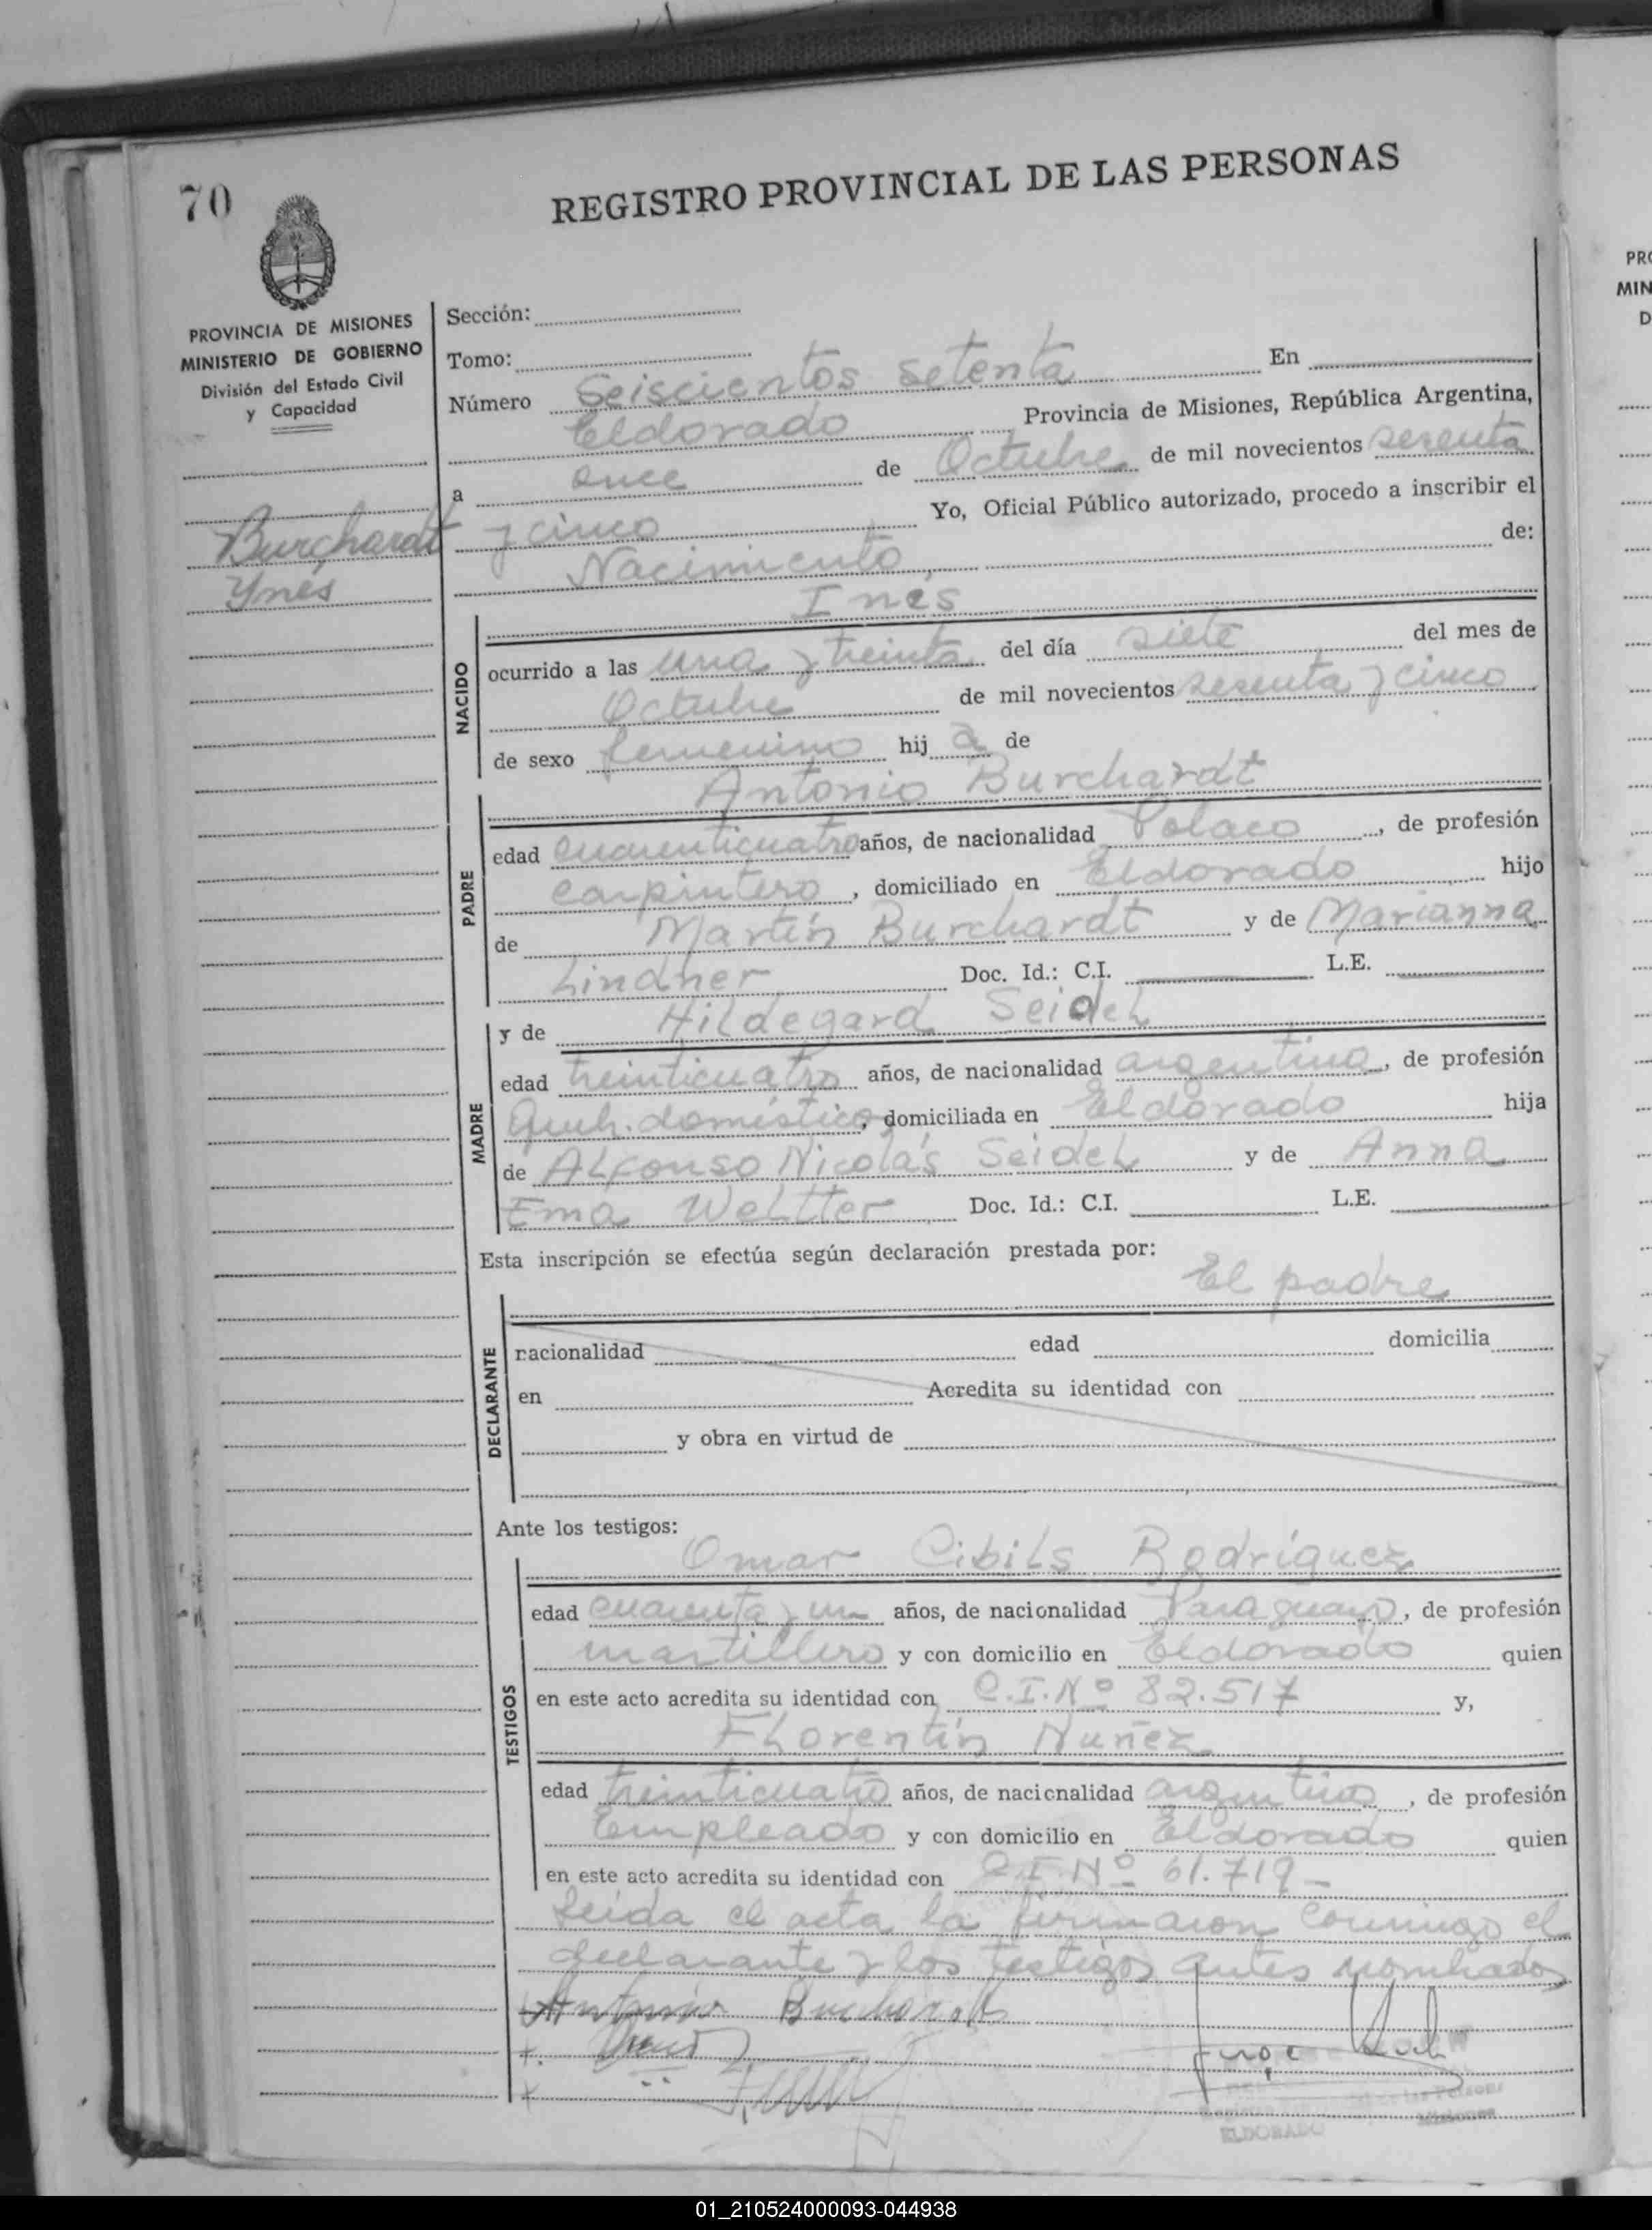 70
REGISTRO PROVINCIAL DE LAS PERSONAS
PROVINCIA DE MISIONES
MINISTERIO DE GOBIERNO
División del Estado Civil
y Capacidad
Burchardt
Ynés
Sección:
Tomo:
Número Seiscientos setenta En
Eldorado Provincia de Misiones, República Argentina,
a once de Octubre de mil novecientos sesenta
y cinco Yo, Oficial Público autorizado, procedo a inscribir el
Nacimiento, de:
Inés
NACIDO
ocurrido a las una y treinta del día siete del mes de
Octubre de mil novecientos sesenta y cinco
de sexo femenino hij a de
Antonio Burchardt
PADRE
edad cuarenticuatro años, de nacionalidad Polaco, de profesión
carpintero, domiciliado en Eldorado hijo
de Martín Burchardt y de Marianna
Lindner Doc. Id.: C.I. L.E.
y de Hildegard Seidel
MADRE
edad treinticuatro años, de nacionalidad argentina, de profesión
Queh. doméstico, domiciliada en Eldorado hija
de Alfonso Nicolás Seidel y de Anna
Ema Weltter Doc. Id.: C.I. L.E.
Esta inscripción se efectúa según declaración prestada por:
El padre
DECLARANTE
nacionalidad edad domicilia
en Acredita su identidad con
y obra en virtud de
Ante los testigos:
Omar Cibils Rodríguez
TESTIGOS
edad cuarenta y un años, de nacionalidad Paraguayo, de profesión
martillero y con domicilio en Eldorado quien
en este acto acredita su identidad con C.I.Nº 82.517 y,
Florentín Nuñez
edad treinticuatro años, de nacionalidad argentino, de profesión
Empleado y con domicilio en Eldorado quien
en este acto acredita su identidad con C.I.Nº 61.719-
Leída el acta la firmaron conmigo el
declarante y los testigos antes nombrados
Antonio Burchardt
ELDORADO
Misiones
PRO
MIN
D
01_210524000093-044938